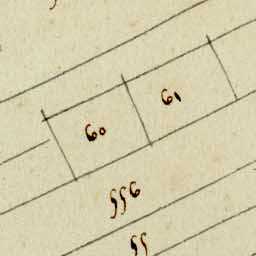 60
61
556
55